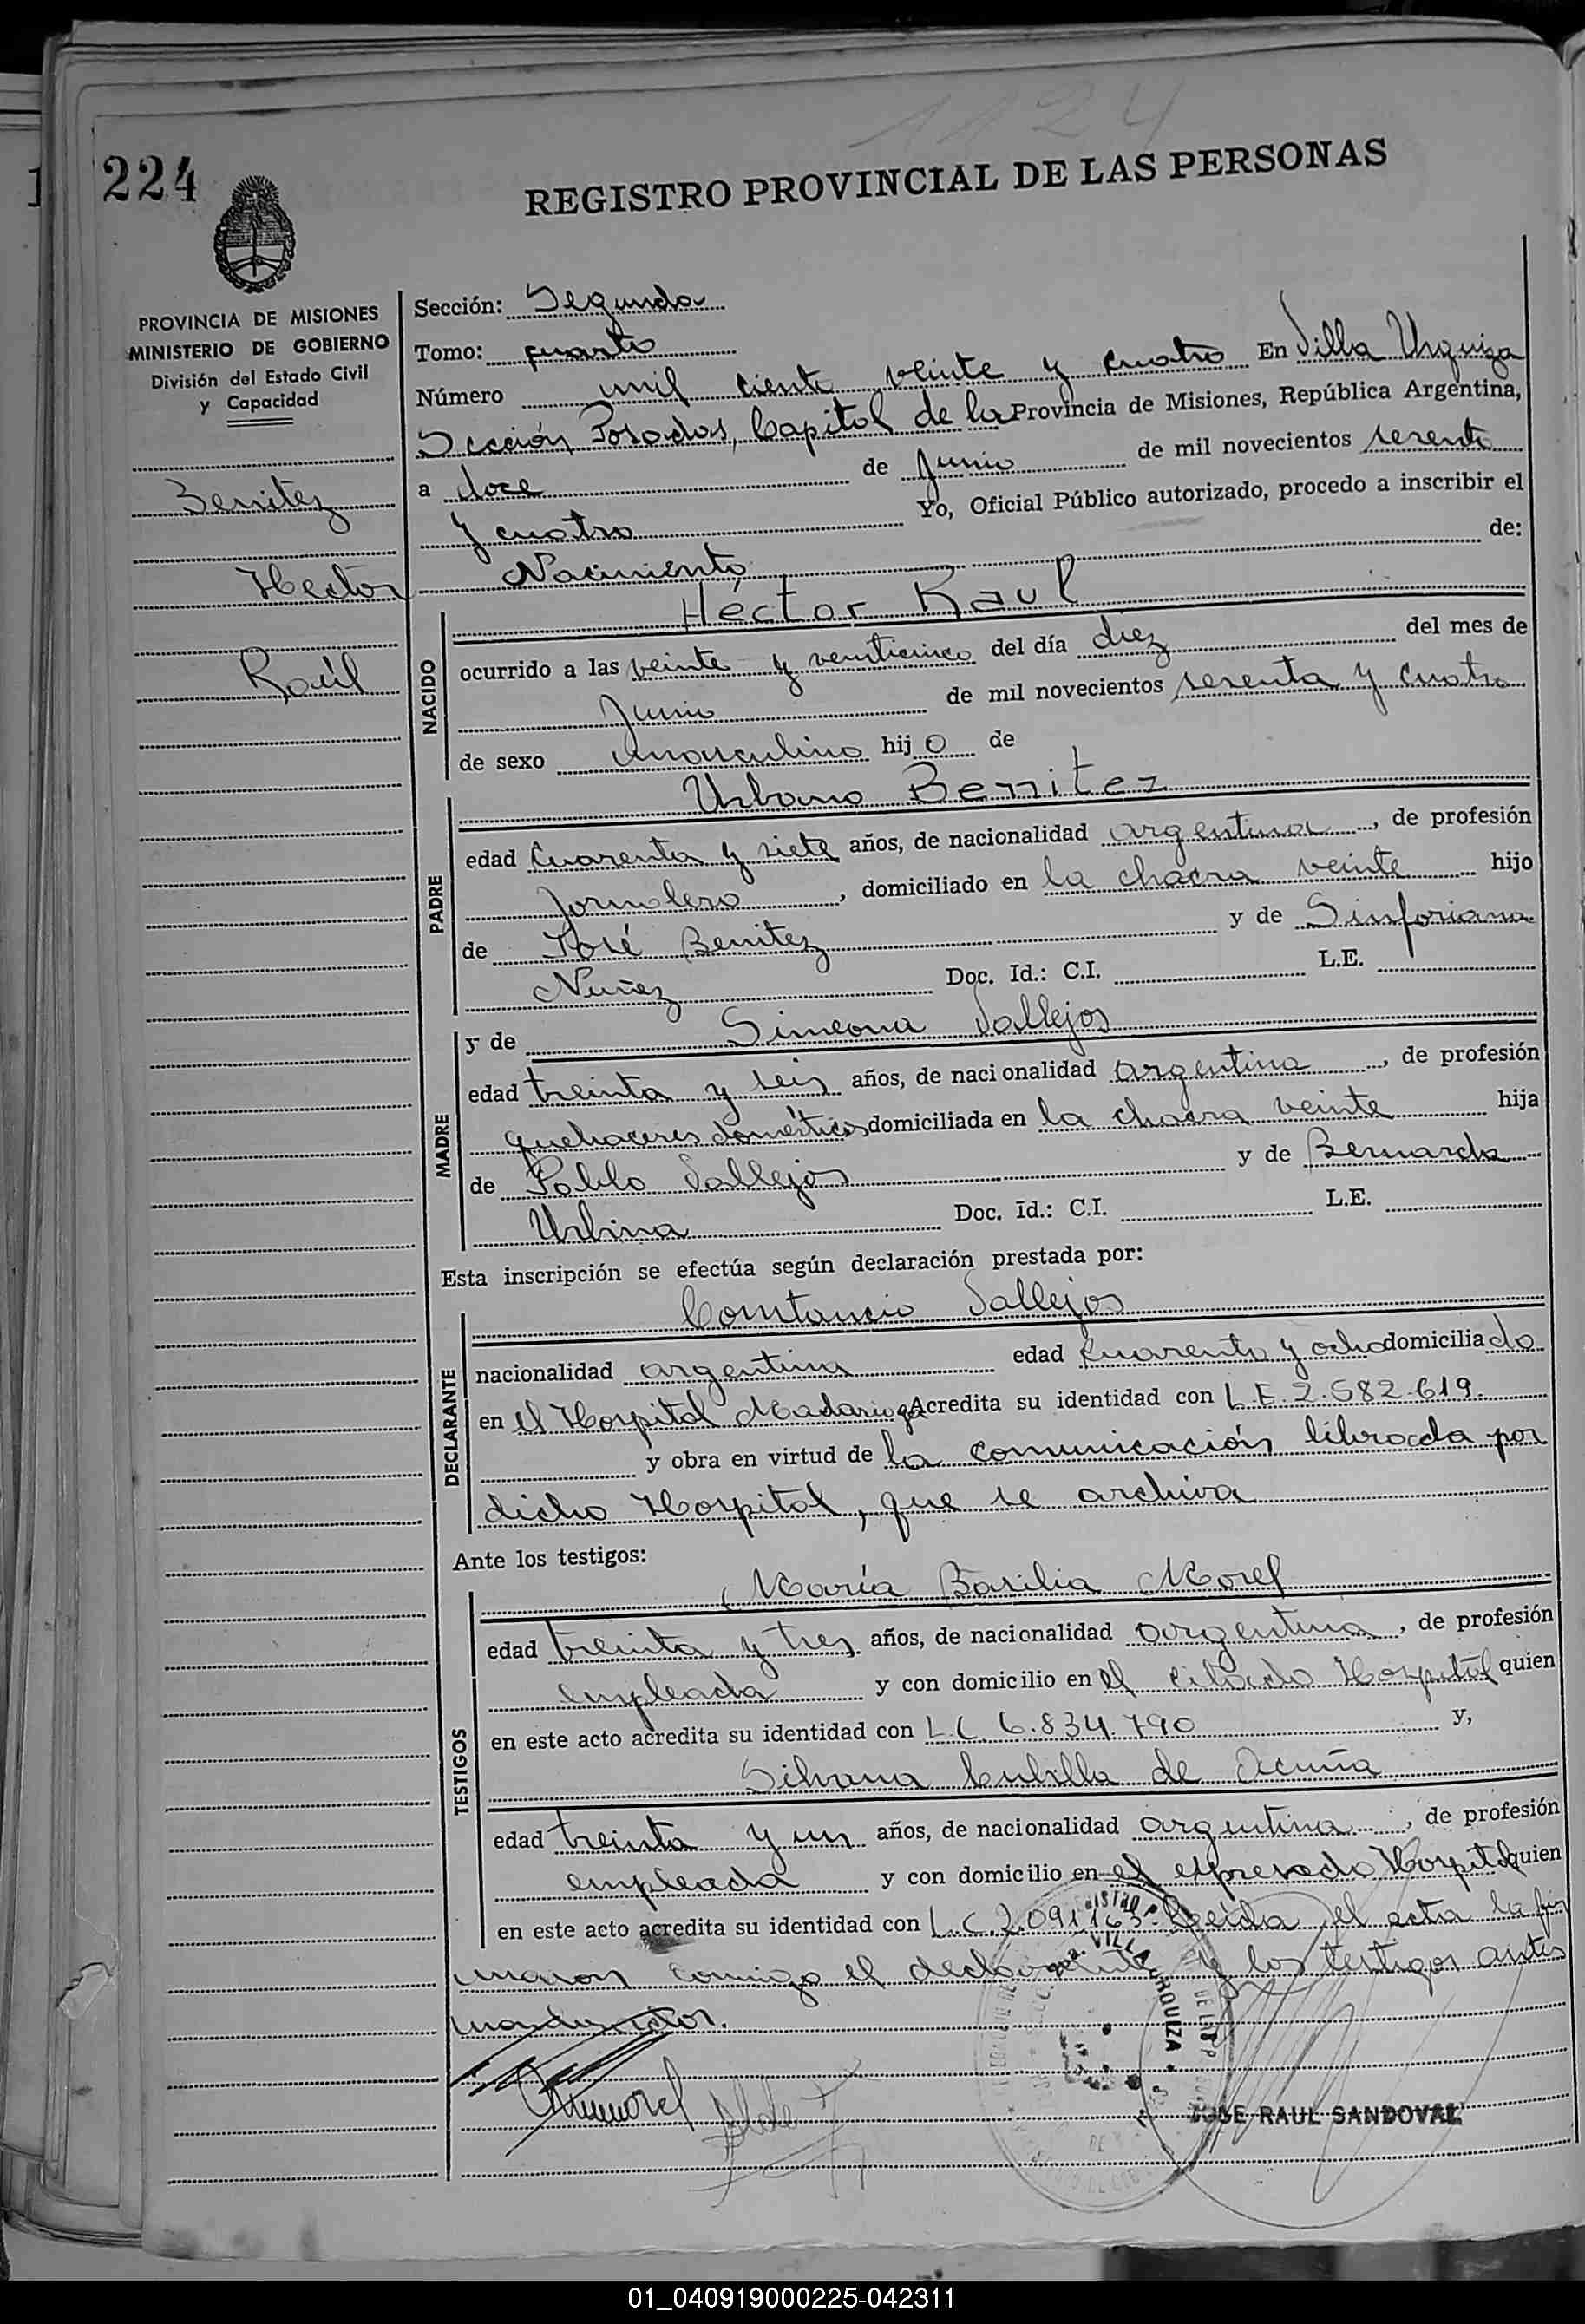 1124
224
REGISTRO PROVINCIAL DE LAS PERSONAS
PROVINCIA DE MISIONES
MINISTERIO DE GOBIERNO
División del Estado Civil
y Capacidad
Benitez
Hector
Raúl
Sección: Segunda
Tomo: cuarto
Número mil ciento veinte y cuatro En Villa Urquiza
Sección Posadas, Capital de la Provincia de Misiones, República Argentina,
a doce de Junio de mil novecientos sesenta
y cuatro Yo, Oficial Público autorizado, procedo a inscribir el
Nacimiento de:
NACIDO
Héctor Raul
ocurrido a las veinte y veinticinco del día diez del mes de
Junio de mil novecientos sesenta y cuatro
de sexo masculino hijo de
PADRE
Urbano Benitez
edad cuarenta y siete años, de nacionalidad argentina, de profesión
Jornalero, domiciliado en la chacra veinte hijo
de José Benitez y de Sinforiana
Nuñez Doc. Id.: C.I. L.E.
MADRE
y de Simeona Vallejos
edad treinta y seis años, de nacionalidad argentina, de profesión
quehaceres domésticos domiciliada en la chacra veinte hija
de Pablo Vallejos y de Bernarda
Urbina Doc. Id.: C.I. L.E.
Esta inscripción se efectúa según declaración prestada por:
DECLARANTE
Constancio Vallejos
nacionalidad argentina edad cuarenta y ocho domiciliado
en el Hospital Madariaga Acredita su identidad con L.E. 2.582.619.
y obra en virtud de la comunicación librada por
dicho Hospital, que se archiva
Ante los testigos:
TESTIGOS
María Basilia Morel
edad treinta y tres años, de nacionalidad argentina, de profesión
empleada y con domicilio en el citado Hospital quien
en este acto acredita su identidad con L.C 6.834.790 y,
Silvana Cubilla de Acuña
edad treinta y un años, de nacionalidad argentina, de profesión
empleada y con domicilio en el expresado Hospital quien
en este acto acredita su identidad con L.C. 2.091.163. Leída el acta la fir
maron conmigo el declarante y los testigos antes
mencionados.
VILLA URQUIZA
JOSE RAUL SANDOVAL
01_040919000225-042311